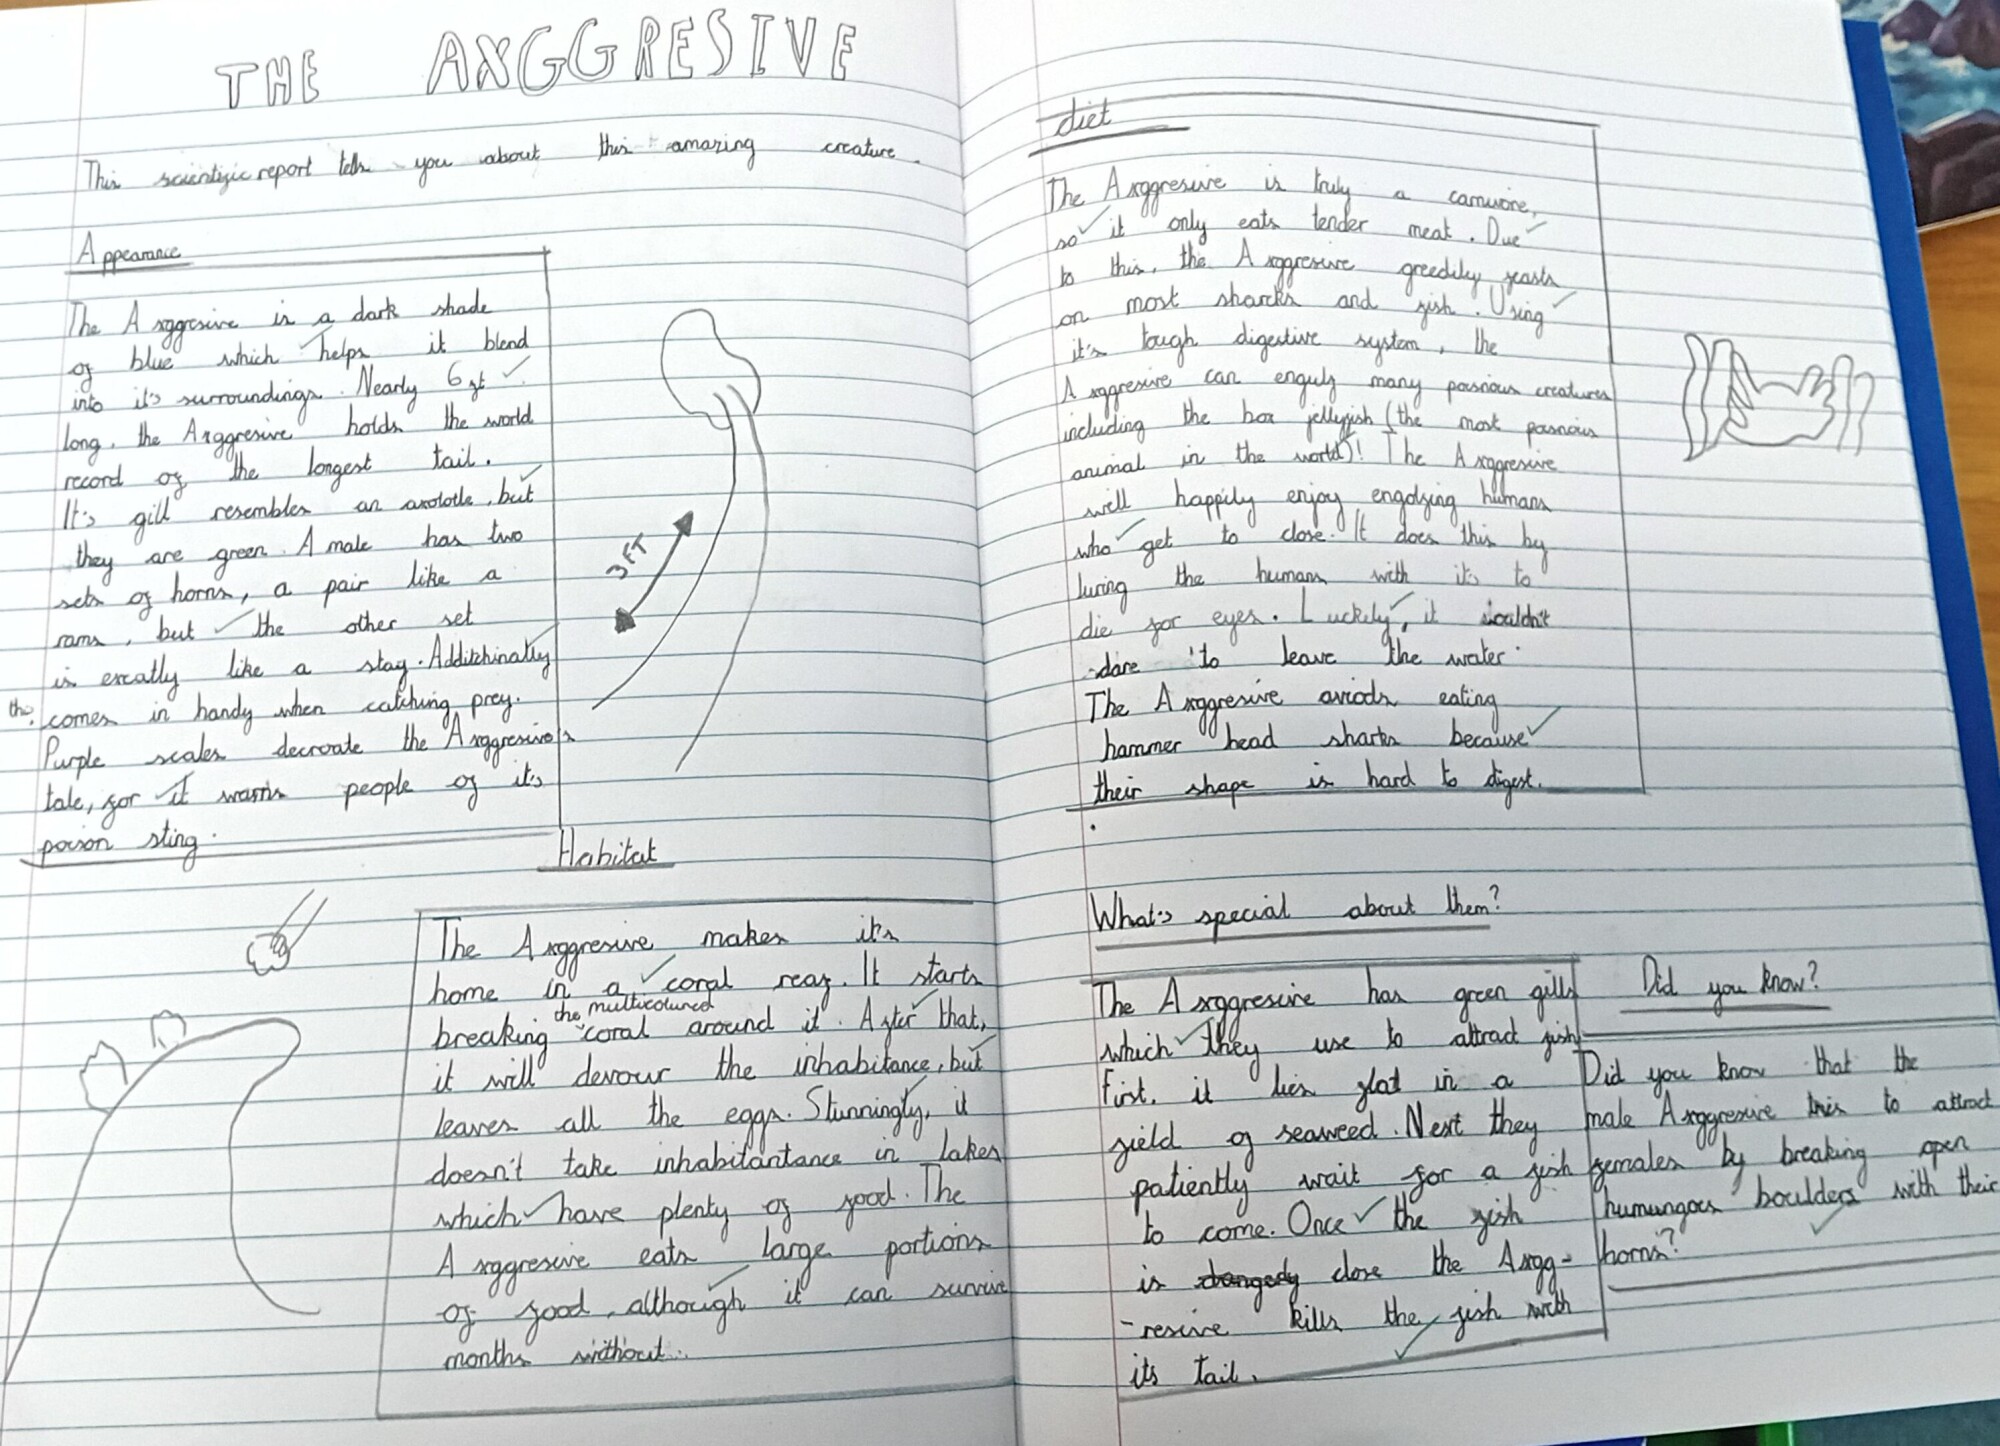 THE AXGGRESIVE
This scientific report tells you about this amazing creature.
Appearance
The Axggresive is a dark shade
of blue which helps it blend
into it's surroundings. Nearly 6ft
long, the Axggresive holds the world
record of the longest tail.
It's gill resembles an axolotle, but
they are green. A male has two
sets of horns, a pair like a
rams, but the other set
is excatly like a stag. Additchinally
this comes in handy when catching prey.
Purple scales decroate the Axggresive's
tale, for it warns people of it's
poison sting.
3FT
Habitat
The Axggresive makes it's
home in a coral reaf. It starts
breaking the multicoloured coral around it. After that,
it will devour the inhabitance, but
leaves all the eggs. Stunningly, it
doesn't take inhabitantance in lakes
which have plenty of food. The
Axggresive eats large portions
of food, although it can survive
months without...
diet
The Axggresive is truly a carnivore,
so it only eats tender meat. Due
to this, the Axggresive greedily feasts
on most sharcks and fish. Using
it's tough digestive system, the
Axggresive can engulf many poisnous creatures
including the box jellyfish (the most poisnous
animal in the world)! The Axggresive
will happily enjoy engolfing humans
who get to close. It does this by
luring the humans with it's to
die for eyes. Luckily, it wouldn't
dare to leave the water.
The Axggresive aviods eating
hammer head sharks because
their shape is hard to digest.
What's special about them?
The Axggresive has green gills
which they use to attract fish.
First, it lies flat in a
field of seaweed. Next they
patiently wait for a fish
to come. Once the fish
is close the Axgg-
-resive kills the fish with
its tail.
Did you know?
Did you know that the
male Axggresive tries to attract
females by breaking open
humungoes boulders with their
horns?